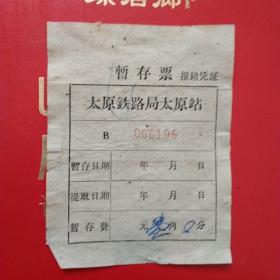 暫存票 报銷凭証
太原鉄路局太原站
B 006196
暫存日期 年 月 日
提取日期 年 月 日
暫存費 元 角 0 分